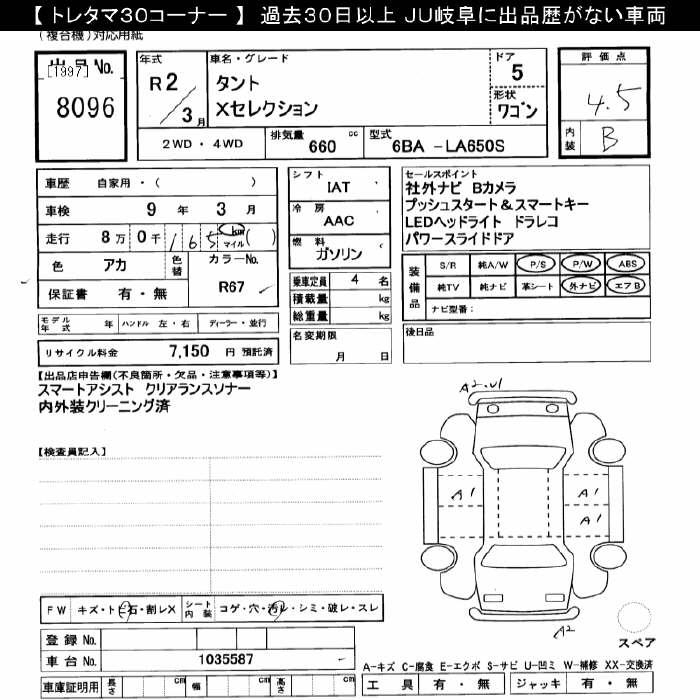 【 トレタマ30コーナー 】 過去30日以上 JU岐阜に出品歴がない車両
(複合機)対応用紙
出品No.
[1997]
8096
年式
R 2
3 月
車名・グレード
タント
Xセレクション
ドア
5
形状
ワゴン
2WD ・ 4WD
排気量 660 cc
型式 6BA -LA650S
評価点
4.5
内装 B
車歴 自家用・( )
車検 9 年 3 月
走行 8 万 0 千 165 km マイル ( )
色 アカ
色替
カラーNo.
R67
保証書 有・無
シフト
IAT
冷房
AAC
燃料
ガソリン
乗車定員 4 名
積載量 kg
総重量 kg
セールスポイント
社外ナビ Bカメラ
プッシュスタート&スマートキー
LEDヘッドライト ドラレコ
パワースライドドア
装備品
S/R 純A/W P/S P/W ABS
純TV 純ナビ 革シート 外ナビ エアB
ナビ型番:
モデル年式 年 ハンドル 左・右 ディーラー・並行
名変期限
月 日
後日品
リサイクル料金 7,150 円 預託済
【出品店申告欄(不良箇所・欠品・注意事項等)】
スマートアシスト クリアランスソナー
内外装クリーニング済
【検査員記入】
A2.U1
A1
A1
A1
A2
スペア
FW キズ・ト石・割レX
シート内装 コゲ・穴・汚レ・シミ・破レ・スレ
登録No.
車台No. 1035587
車庫証明用 長さ cm 幅 cm 高さ cm
A-キズ C-腐食 E-エクボ S-サビ U-凹ミ W-補修 XX-交換済
工具 有・無 ジャッキ 有・無